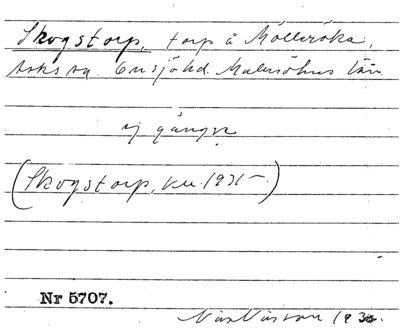 Skogstorp, torp å Mölleröka,
sn. Onsjöhd. Malmöhus län
ej gängse
(Skogstorp, ku. 1931-)
Nr 5707.
193